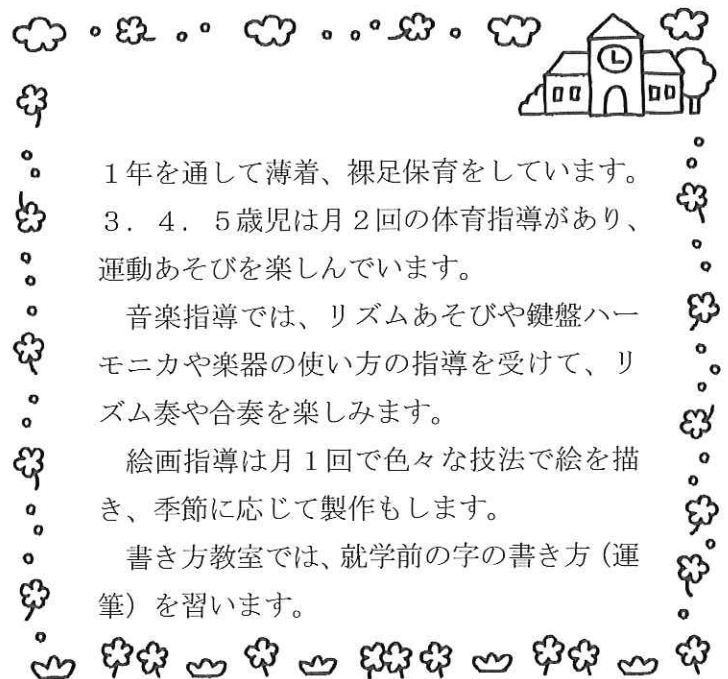 １年を通して薄着、裸足保育をしています。
３．４．５歳児は月２回の体育指導があり、
運動あそびを楽しんでいます。
　音楽指導では、リズムあそびや鍵盤ハー
モニカや楽器の使い方の指導を受けて、リ
ズム奏や合奏を楽しみます。
　絵画指導は月１回で色々な技法で絵を描
き、季節に応じて製作もします。
　書き方教室では、就学前の字の書き方（運
筆）を習います。